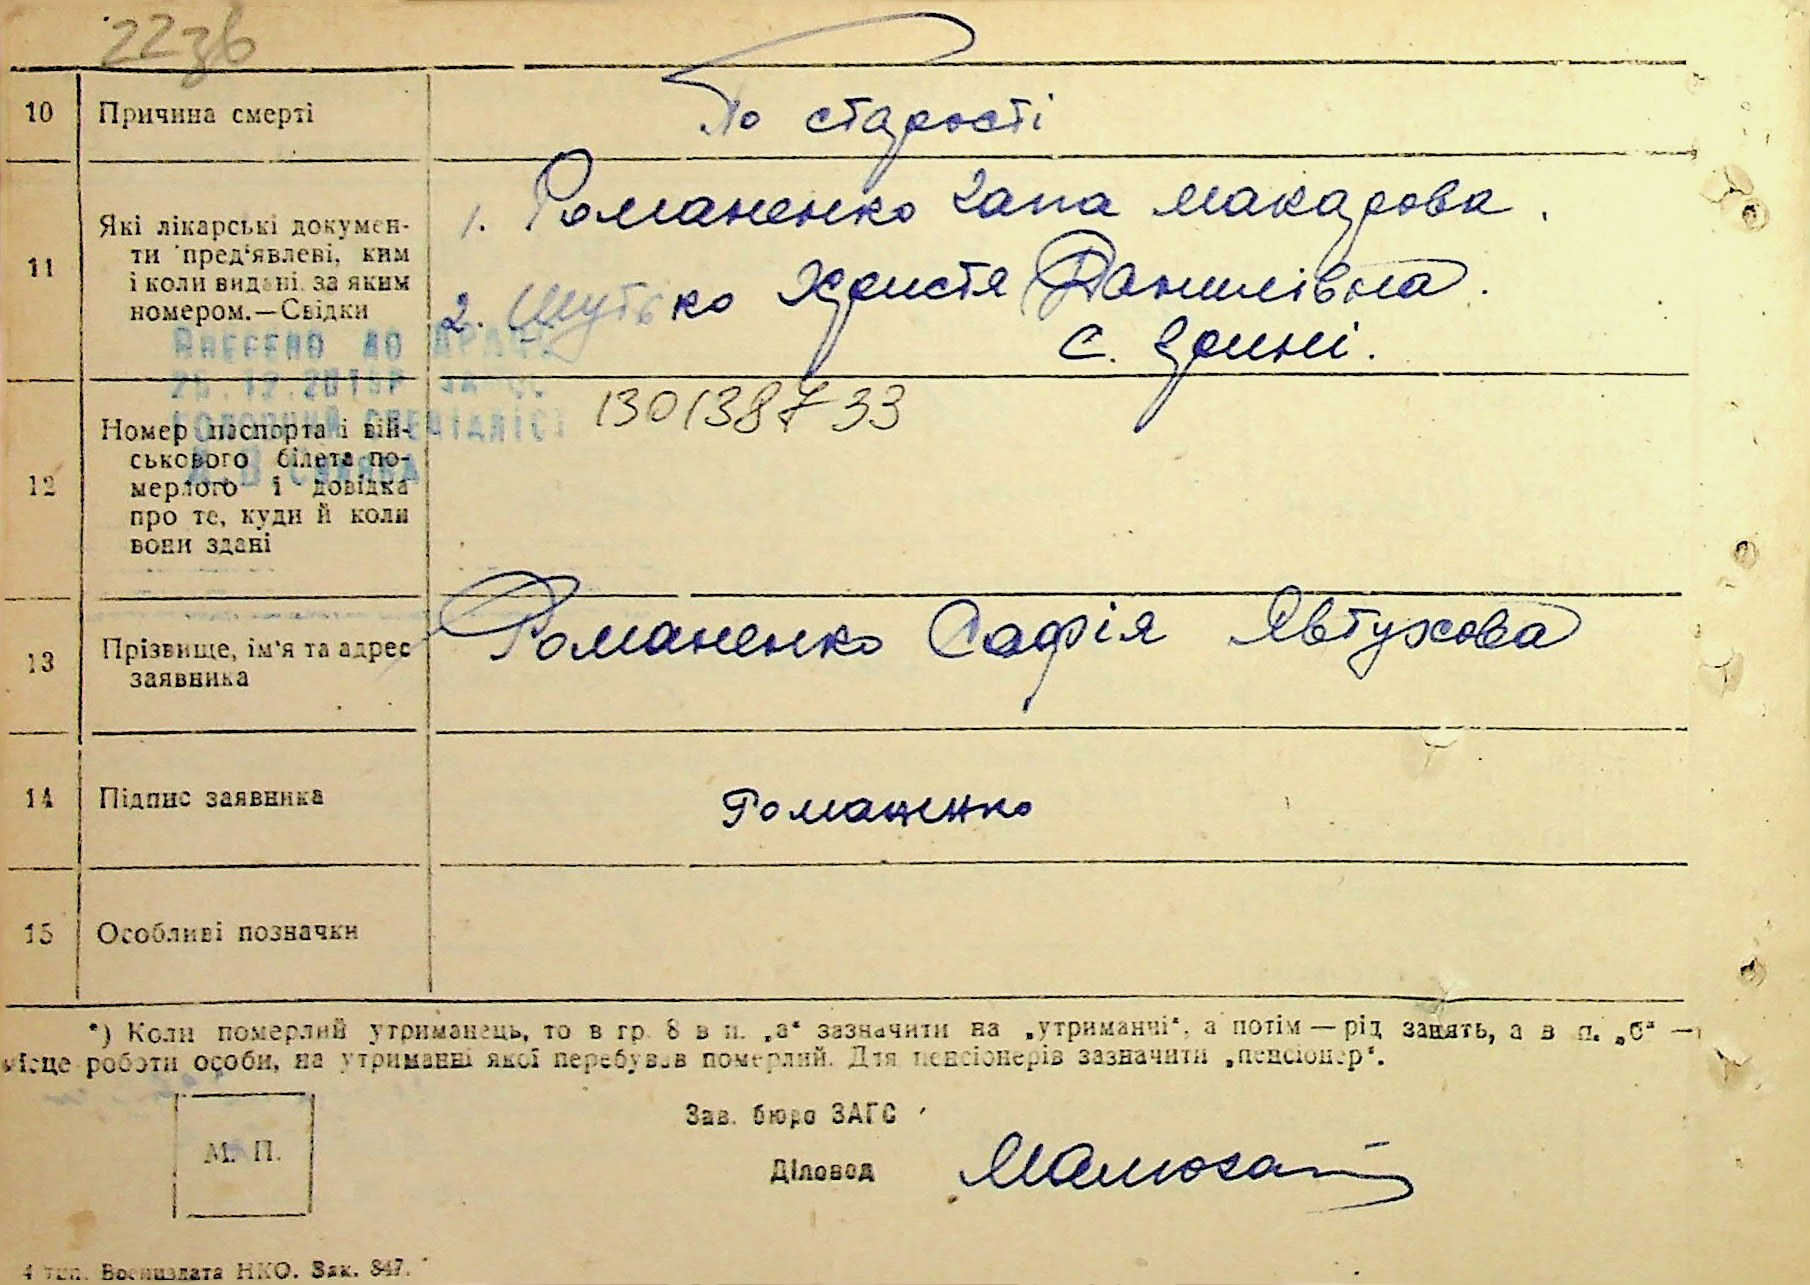 22зв
10 Причина смерті По старості
11 Які лікарські докумен-
ти пред'явлеві, ким
і коли видані за яким
номером.—Свідки
1. Романенко Гапа Макарова.
2. Шутько Христя Данилівна.
с. Ярині.
Внесено до ДРАЦС
26.12.2018р
головний спеціаліст
130138733
12 Номер паспорта і вій-
ськового білета по-
мерлого і довідка
про те, куди й коли
вони здані
13 Прізвище, ім'я та адрес
заявника
Романенко Софія Явтухова
14 Підпис заявника Романенко
15 Особливі позначки
*) Коли померлий утриманець, то в гр. 8 в п. „а“ зазначити на „утриманчі“, а потім — рід занять, а в п. „б“ —
місце роботи особи, на утриманні якої перебував померлий. Для пенсіонерів зазначити „пенсіонер“.
М. П.
Зав. бюро ЗАГС
Діловод
4 тип. Воениздата НКО. Зак. 847.